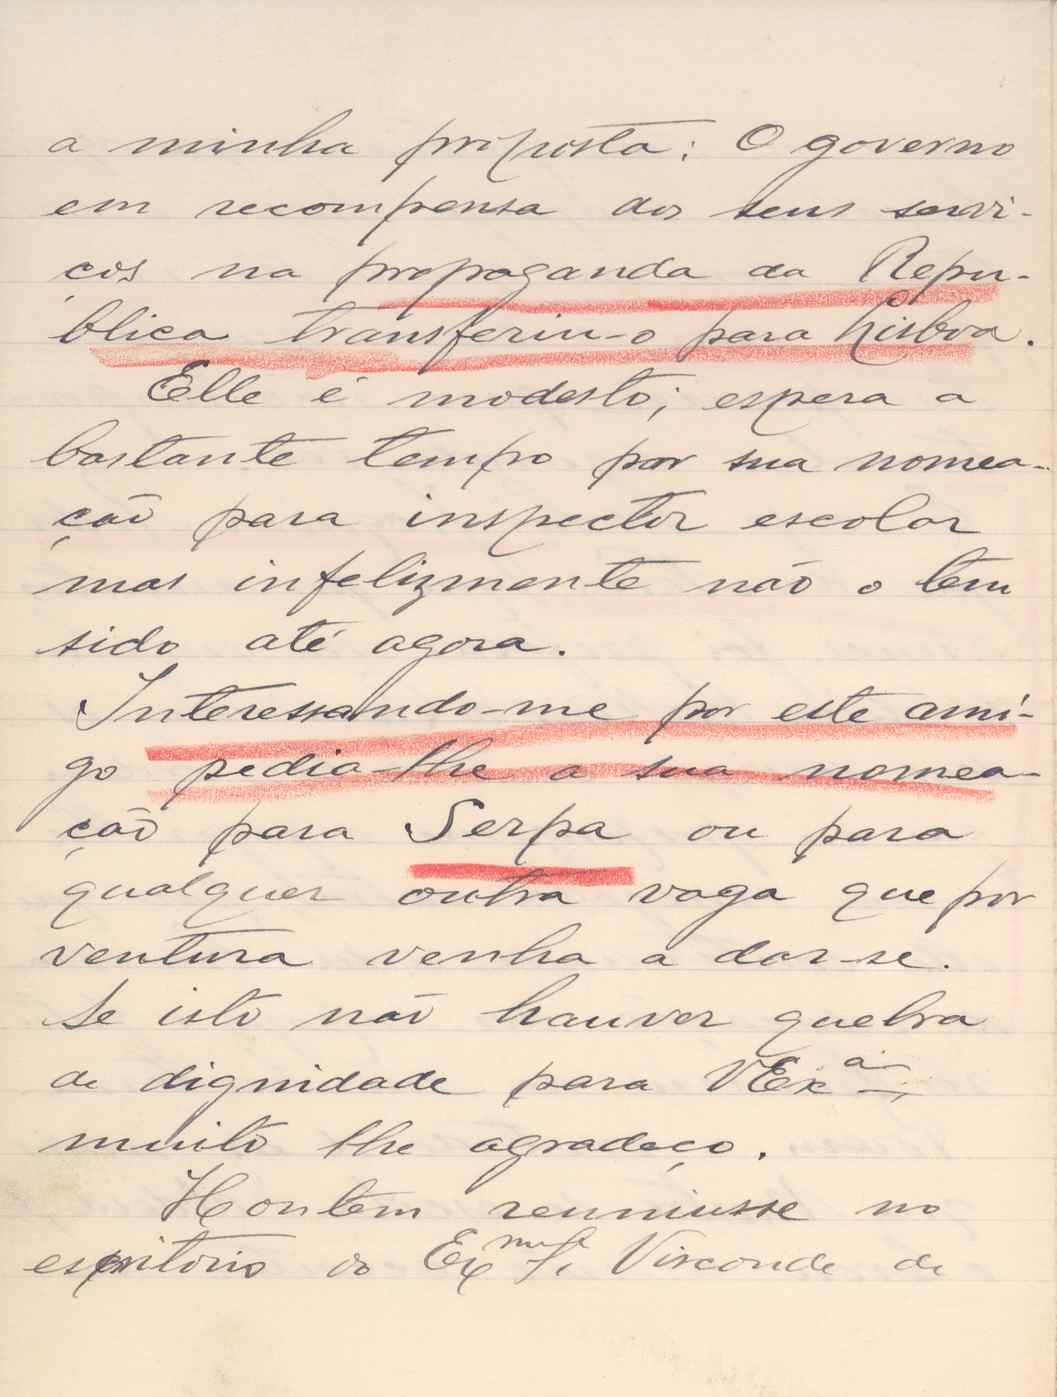 a minha proposta: O governo
em recompensa dos seus servi-
ços na propaganda da Repu-
blica transferiu-o para Lisboa.
Elle é modesto; espera a
bastante tempo por sua nomea-
ção para inspector escolar
mas infelizmente não o tem
sido até agora.
Interessando-me por este ami-
go pedia-lhe a sua nomea-
ção para Serpa ou para
qualquer outra vaga que por
ventura venha a dar-se.
Se isto não hauver quebra
de dignidade para VExª
muito lhe agradeço.
Hontem reuniusse no
espritorio do Exmº Sr. Visconde de